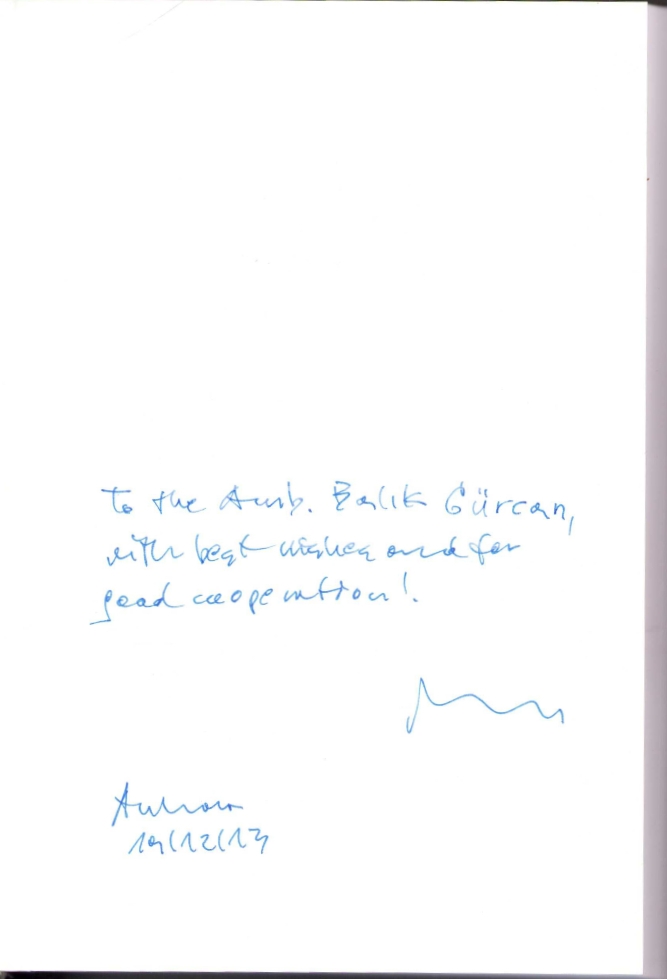 To the Amb. Balık Gürcan,
with best wishes and for
good cooperation!
Ankara
19/12/13